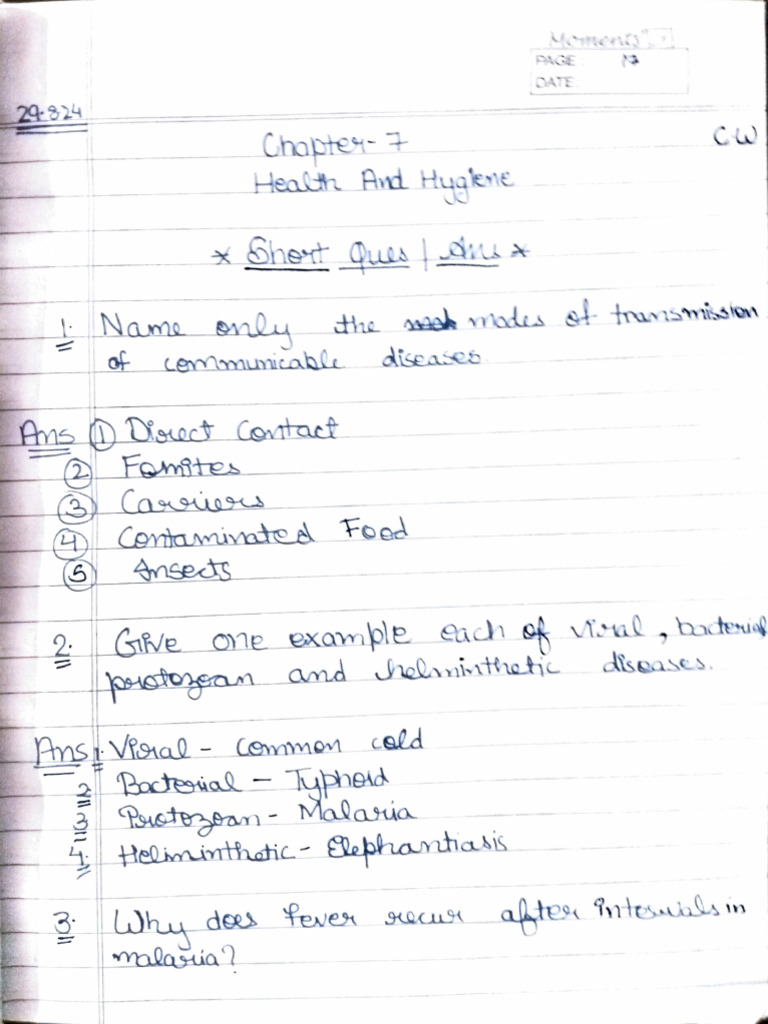 Moments
PAGE: 17
DATE:
29.8.24
Chapter-7
CW
Health And Hygiene
* Short Ques | Ans *
1. Name only the modes of transmission
of communicable diseases
Ans ① Direct Contact
② Fomites
③ Carriers
④ Contaminated Food
⑤ Insects
2. Give one example each of viral, bacterial
protozoan and helminthetic diseases.
Ans 1. Viral - Common cold
2 Bacterial - Typhoid
3 Protozoan - Malaria
4. Helminthetic - Elephantiasis
3. Why does fever recur after intervals in
malaria?